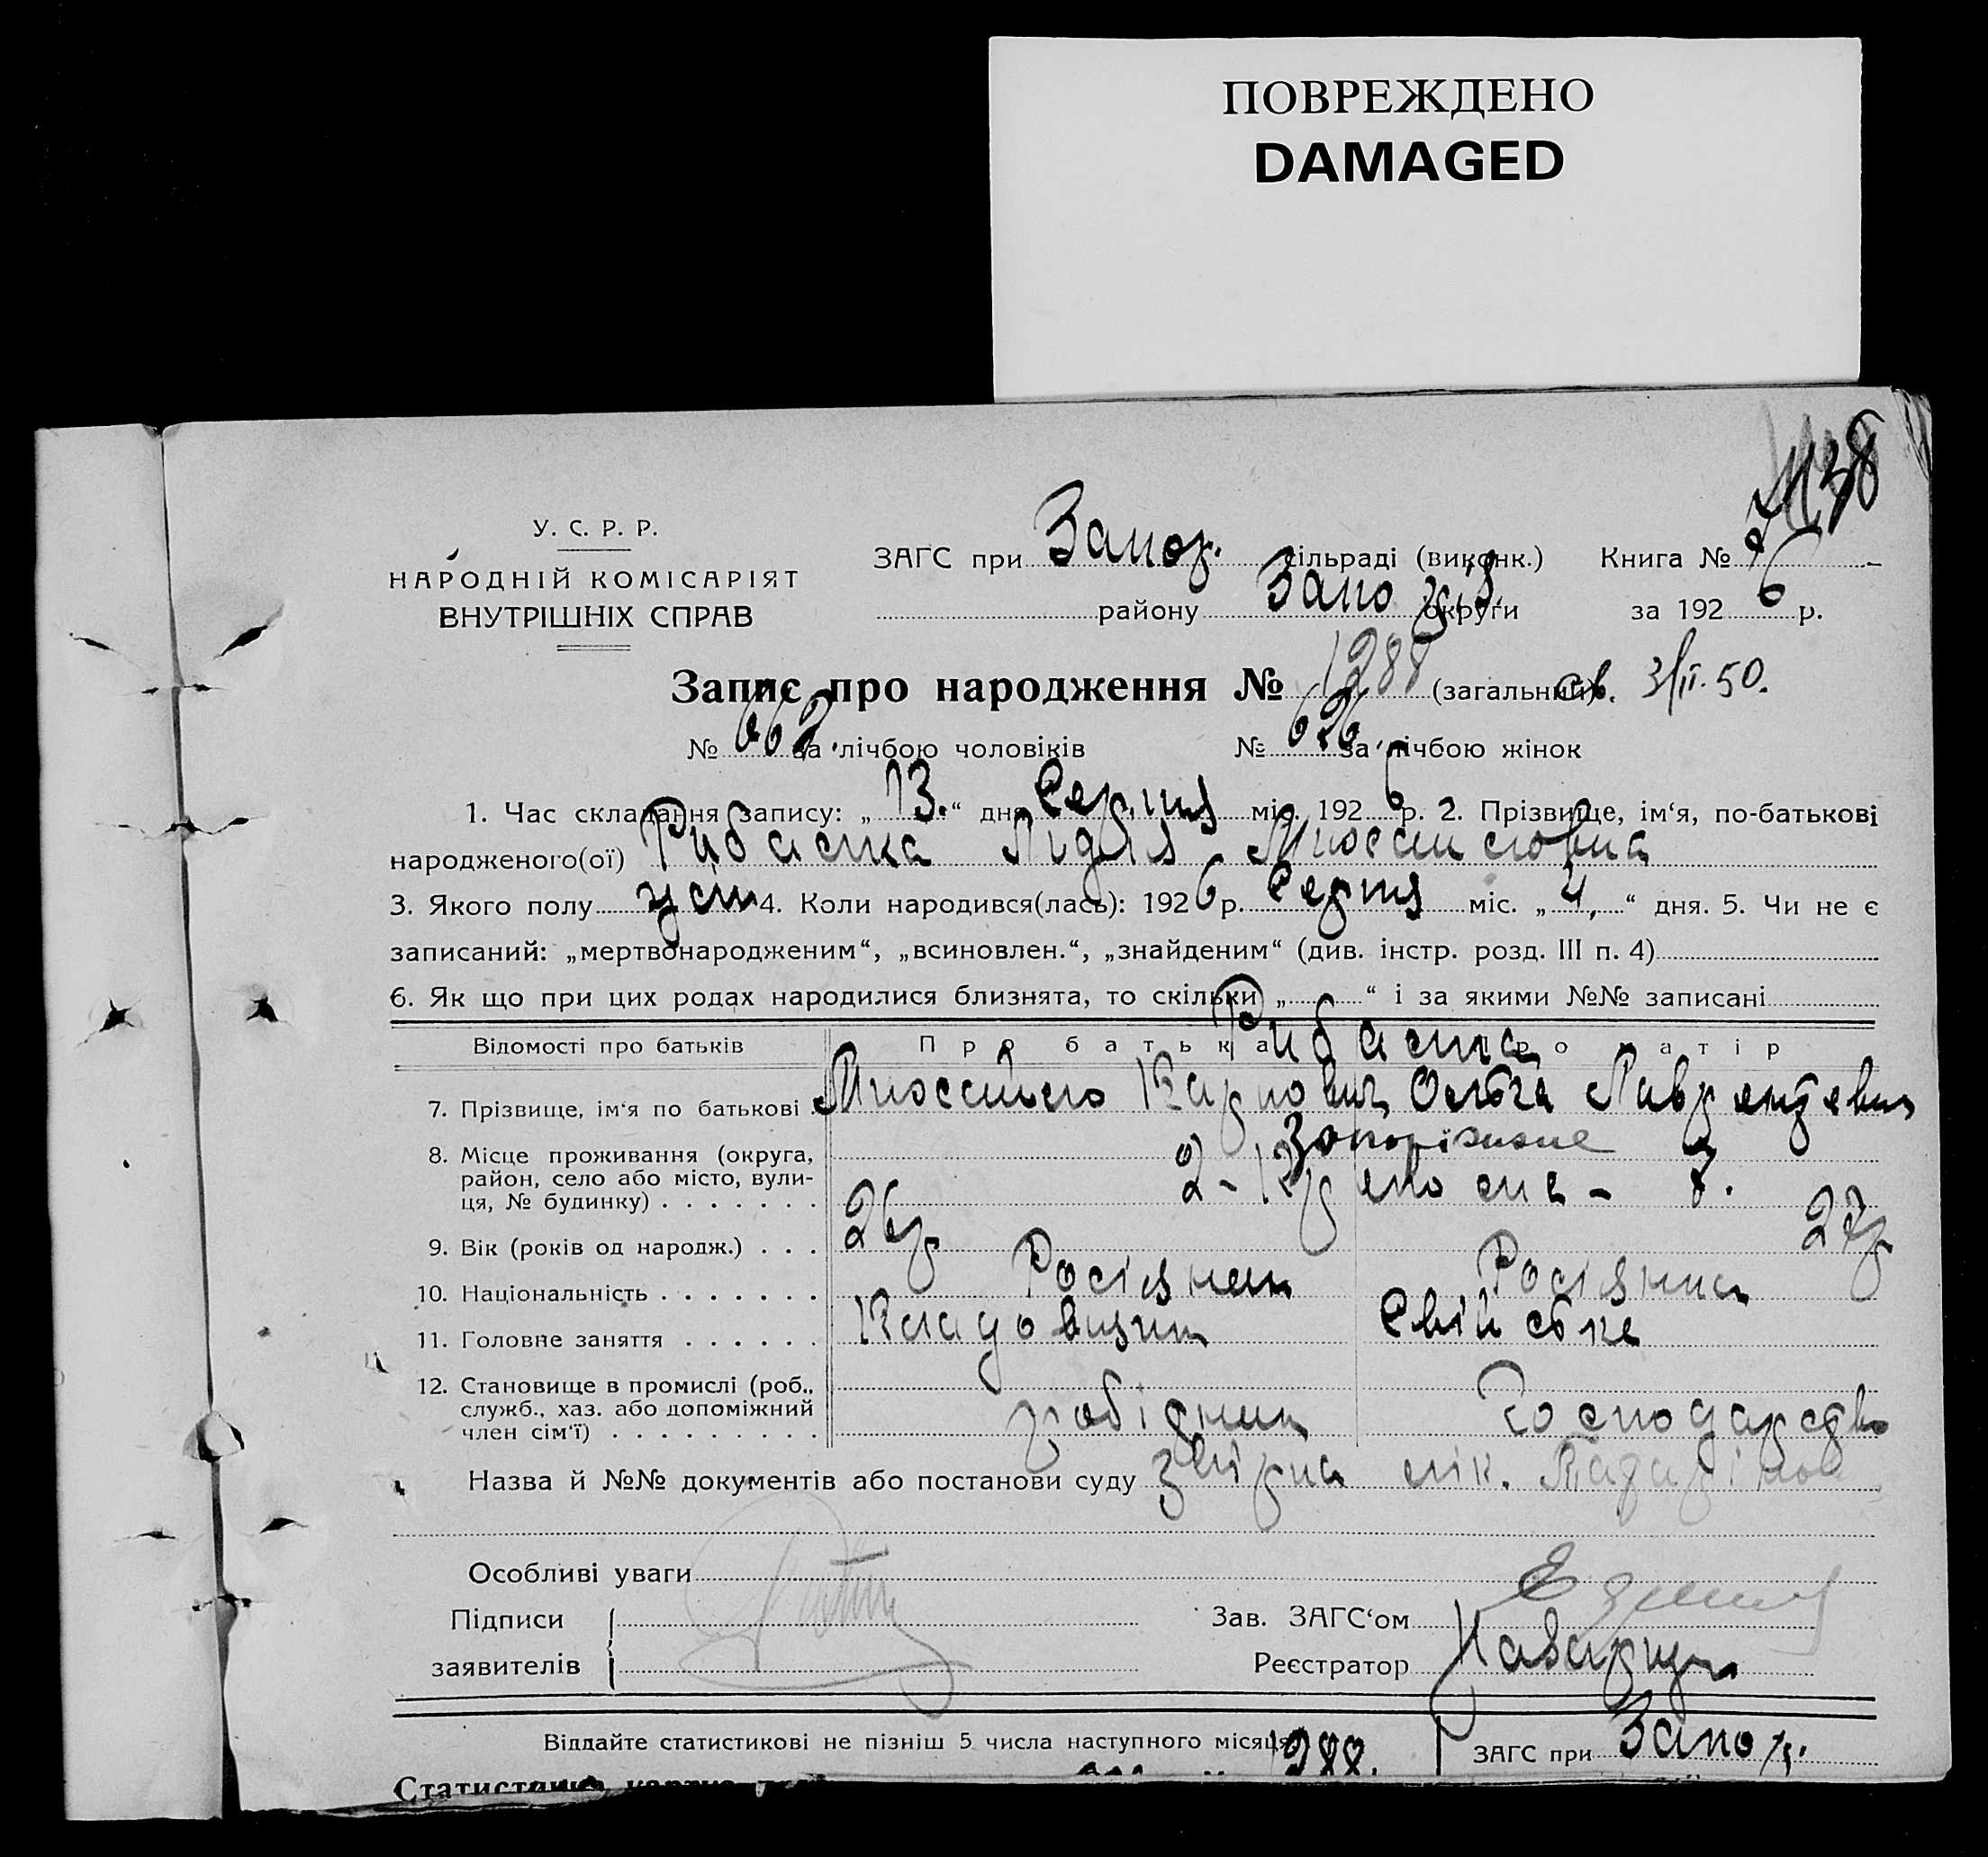 ПОВРЕЖДЕНО
DAMAGED
У. С. Р. Р.
НАРОДНІЙ КОМІСАРІЯТ
ВНУТРІШНІХ СПРАВ
ЗАГС при Запор. сільраді (виконк.) Книга №
району Запоріз. округи за 1926 р.
Запис про народження № 1288 (загальний) св. 3/II. 50.
№ 662 за лічбою чоловіків № 626 за лічбою жінок
1. Час складання запису: „13.“ дня Серпня міс. 1926 р. 2. Прізвище, ім‘я, по-батькові
народженого(ої) Рибалка Лідія
3. Якого полу жін 4. Коли народився(лась): 1926 р. Серпня міс. „4.“ дня. 5. Чи не є
записаний: „мертвонародженим“, „всиновлен.“, „знайденим“ (див. інстр. розд. III п. 4)
6. Як що при цих родах народилися близнята, то скільки „ “ і за якими №№ записані
Рибалка
Відомості про батьків Про батька Про матір
7. Прізвище, ім‘я по батькові Карпович Ольга Лаврентьевна
8. Місце проживання (округа, район, село або місто, вули-
ця, № будинку) Запоріжжє
2-
9. Вік (років од народж.) 26р 27р
10. Національність Росіянин Росіянка
11. Головне заняття Кладовщик Свійська
12. Становище в промислі (роб., служб., хаз. або допоміжний
член сім‘ї) робітник Господарство
Назва й №№ документів або постанови суду лік.
Особливі уваги
Підписи
заявителів
Зав. ЗАГС‘ом
Реєстратор
Віддайте статистикові не пізніш 5 числа наступного місяця 1288. ЗАГС при Запор.
Статистична картка